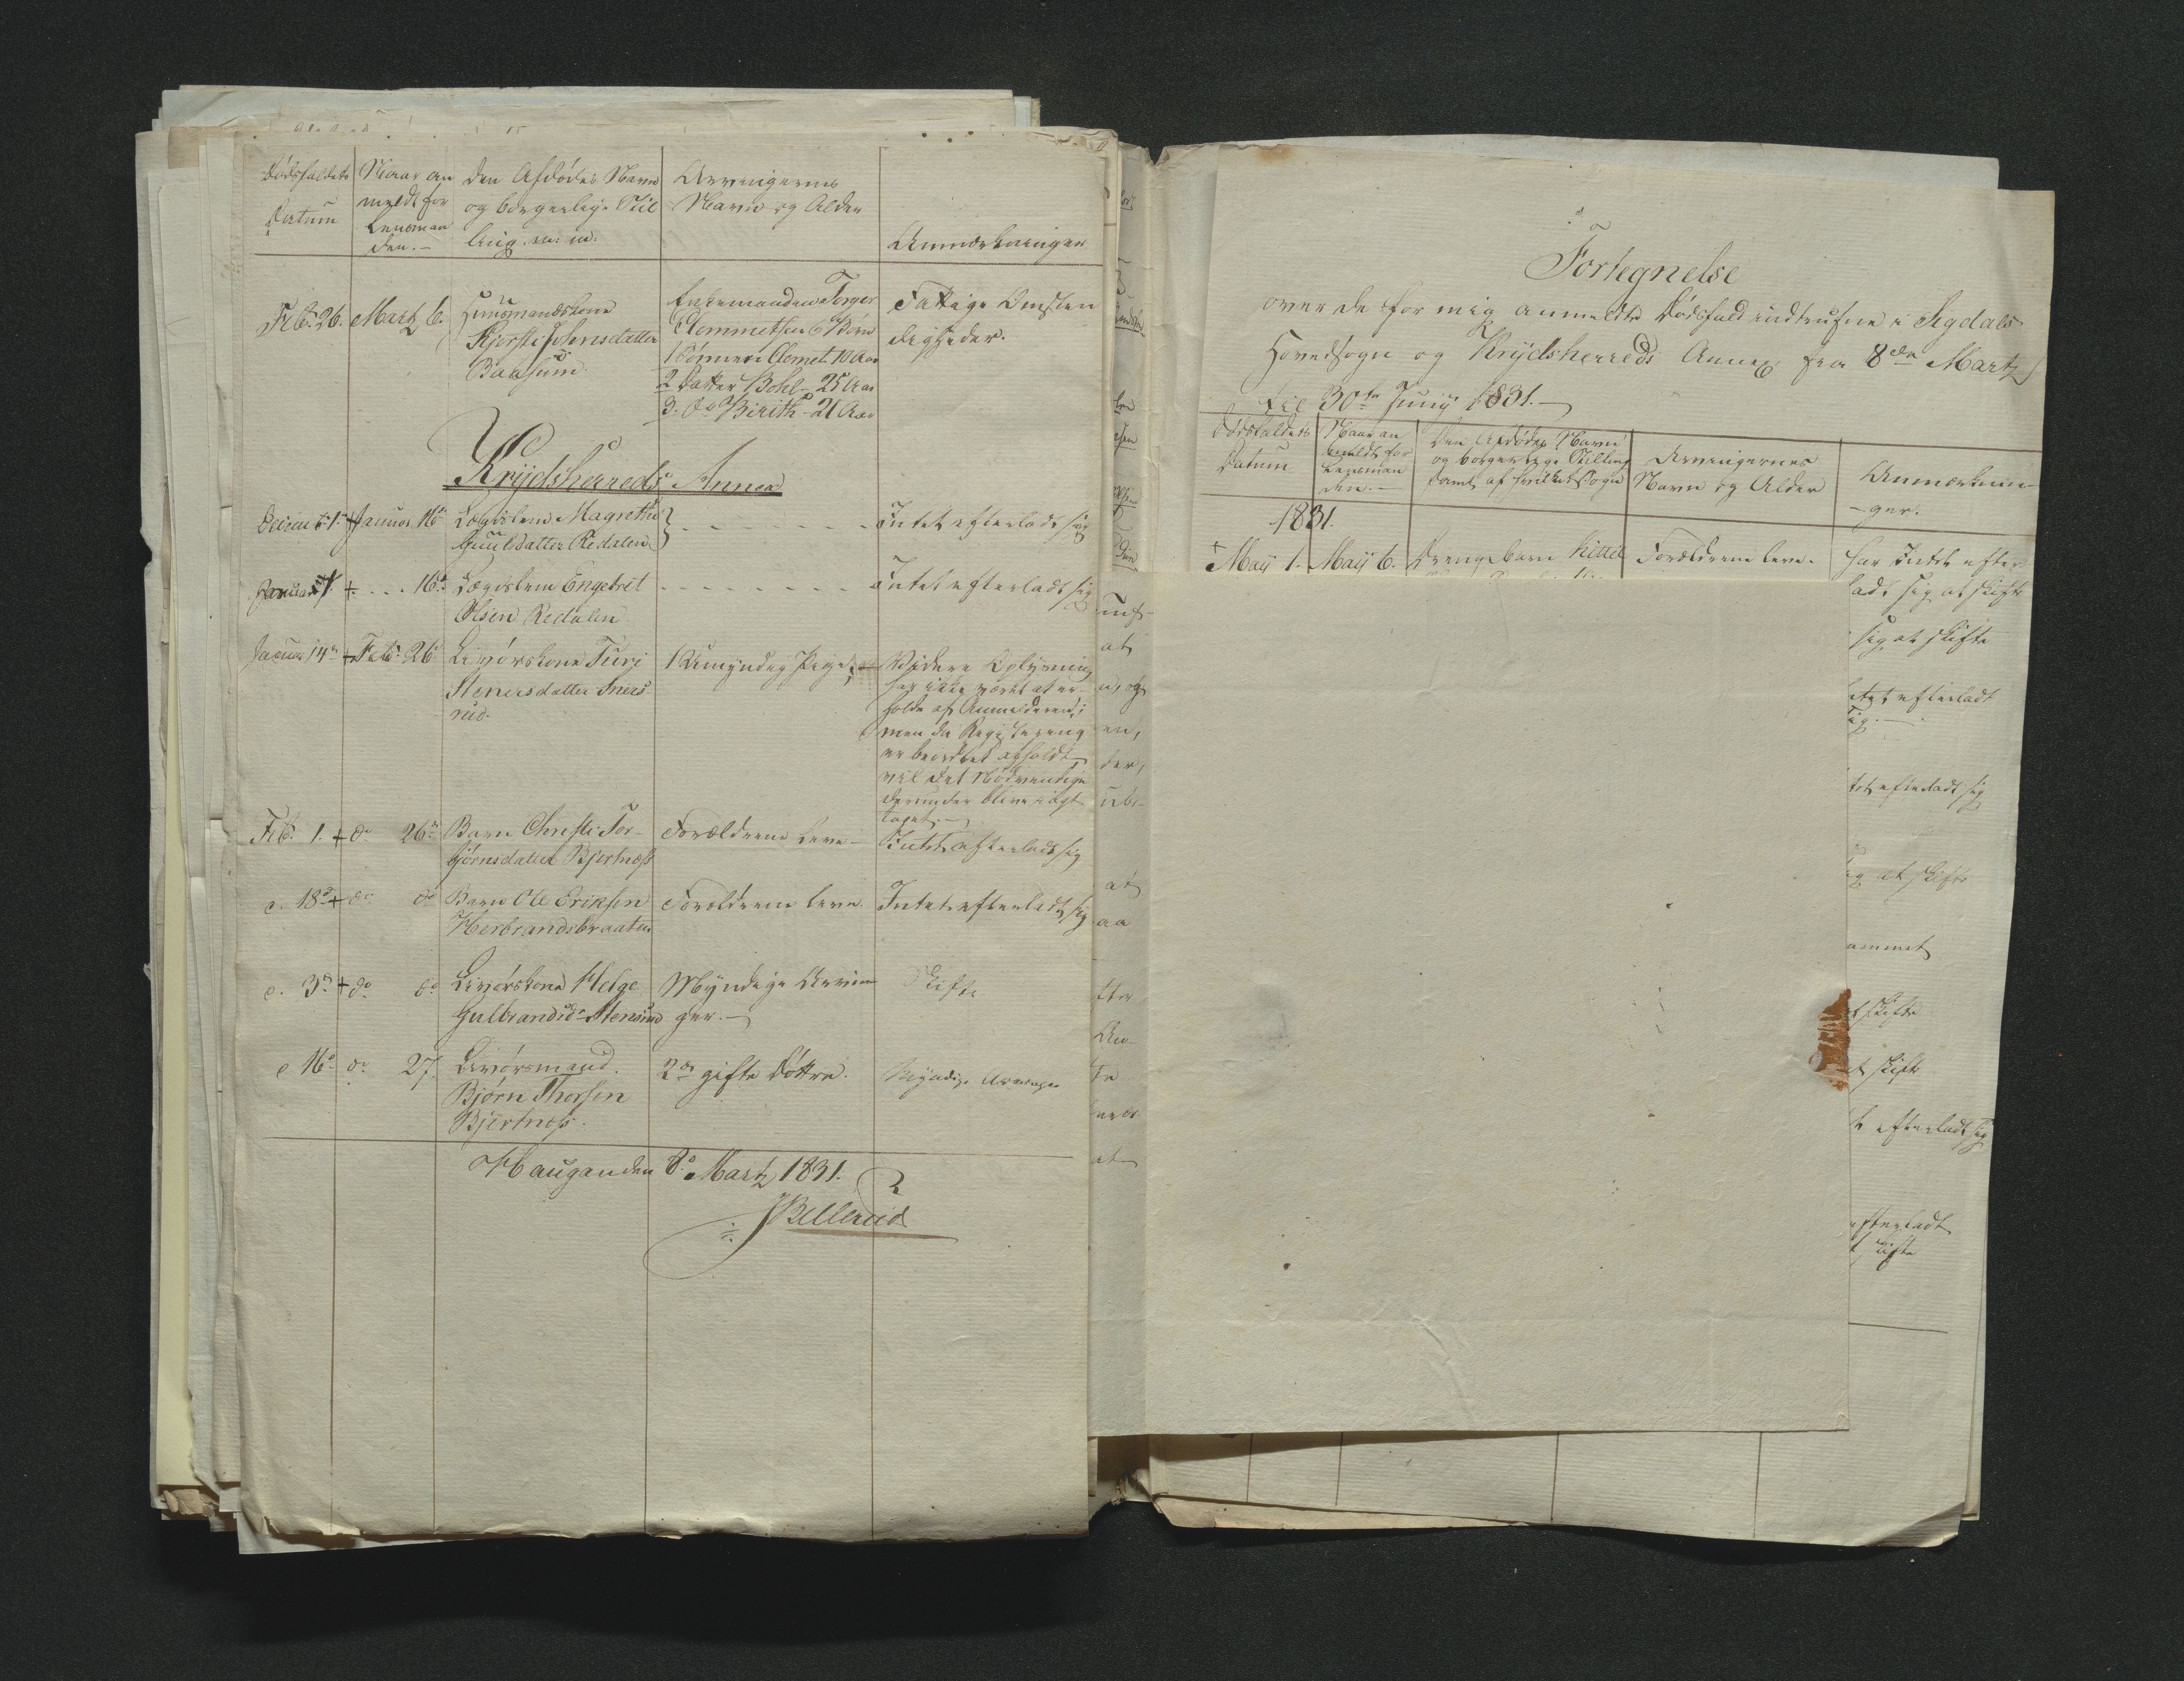 Dødsfaldets
Datum
Naar an
meldt for
Lensman
den.-
Den Afdødes Navn
og borgerlige Stil
ling m: m:
Arvingernes
Navn og Alder
Anmærkninger
Feb. 26. Martz 6.
Huusmandskone
Kjersti Johnsdatter
Baasum.
Enkemanden Torger
Clommetsen 6 Børn
1 Sønnen Clomet 10 Aar
2 Datter Bohl - 25 Aar
3. do Birith - 21 Aar
Fattige Omstæn
digheder.
Krydsherreds Annex
Januar 16de Lægdslem Magrethe
Guulsdatter Redalen
Intet efterladt sig
Januar
16de Lægdslem Engebret
Olsen Redalen
Intet efterladt sig
Januar 14de + Feb. 26de Livørskone Turi
Stenersdatter Sners-
rud.
1 Umyndig Pige
Videre Oplysning
har ikke været at er-
holde af Anmelderen;
men da Registrering
er beordret afholdt
vil det Nødvendige
derunder blive iagt
taget.-
Feb. 1. + do 26de Barn Christi Tor-
bjørnsdatter Bjertnæss
Forældrene leve-
Intet efterladt sig
18de + do do Barn Ole Eriksen
Herbrandsbraaten
Forældrene leve.
Intet efterladt sig
3de + do do Livørskone Helge
Gulbrandsd. Stensrud
Myndige Arvin
ger.-
Skifte
16de do 27. Livørsmand
Bjørn Thorsen
Bjertnæss.
2de gifte Døttre.
Myndige Arvinger
Haugan den 8de Martz 1831.
JBellerud
Fortegnelse
over de for mig anmeldte Dødsfald indtrufne i Sigdals
Hovedsogn og Krydsherreds Annex fra 8de Martz
til 30te Junij 1831.-
Dødsfaldets
Datum
Naar an
meldt for
Lensman
den.-
Den Afdødes Navn
og borgerlige Stilling
samt af hvilket Sogn
Arvingernes
Navn og Alder
Anmærknin-
-ger.
1831.
+ Maij 1. Maij 6. Drengebarn Kittel Forældrene leve. Har Intet efter
ladt sig at skifte
sig at skifte
efterladt
sig.-
efterladt sig
sig at skifte
at skifte
at skifte
efterladt sig
efterladt
at skifte